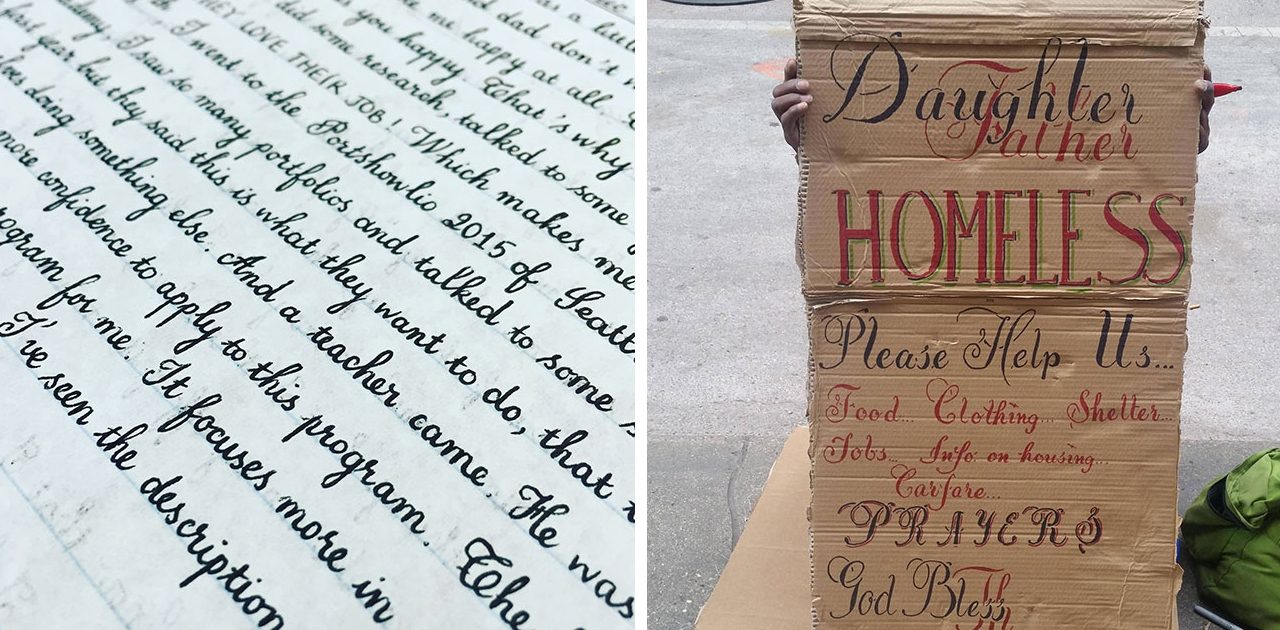 dad don't
me happy at all
you happy. That's why
did some research, talked to some
THEY LOVE THEIR JOB! Which makes me
I went to the Portshowlio 2015 of Seatt
I saw so many portfolios and talked to some
year but they said this is what they want to do, that
doing something else. And a teacher came. He was
more confidence to apply to this program. The
rogram for me. It focuses more in
I've seen the description
Daughter
Father
HOMELESS
Please Help Us...
Food... Clothing... Shelter...
Jobs... Info on housing...
Carfare...
PRAYERS
God Bless